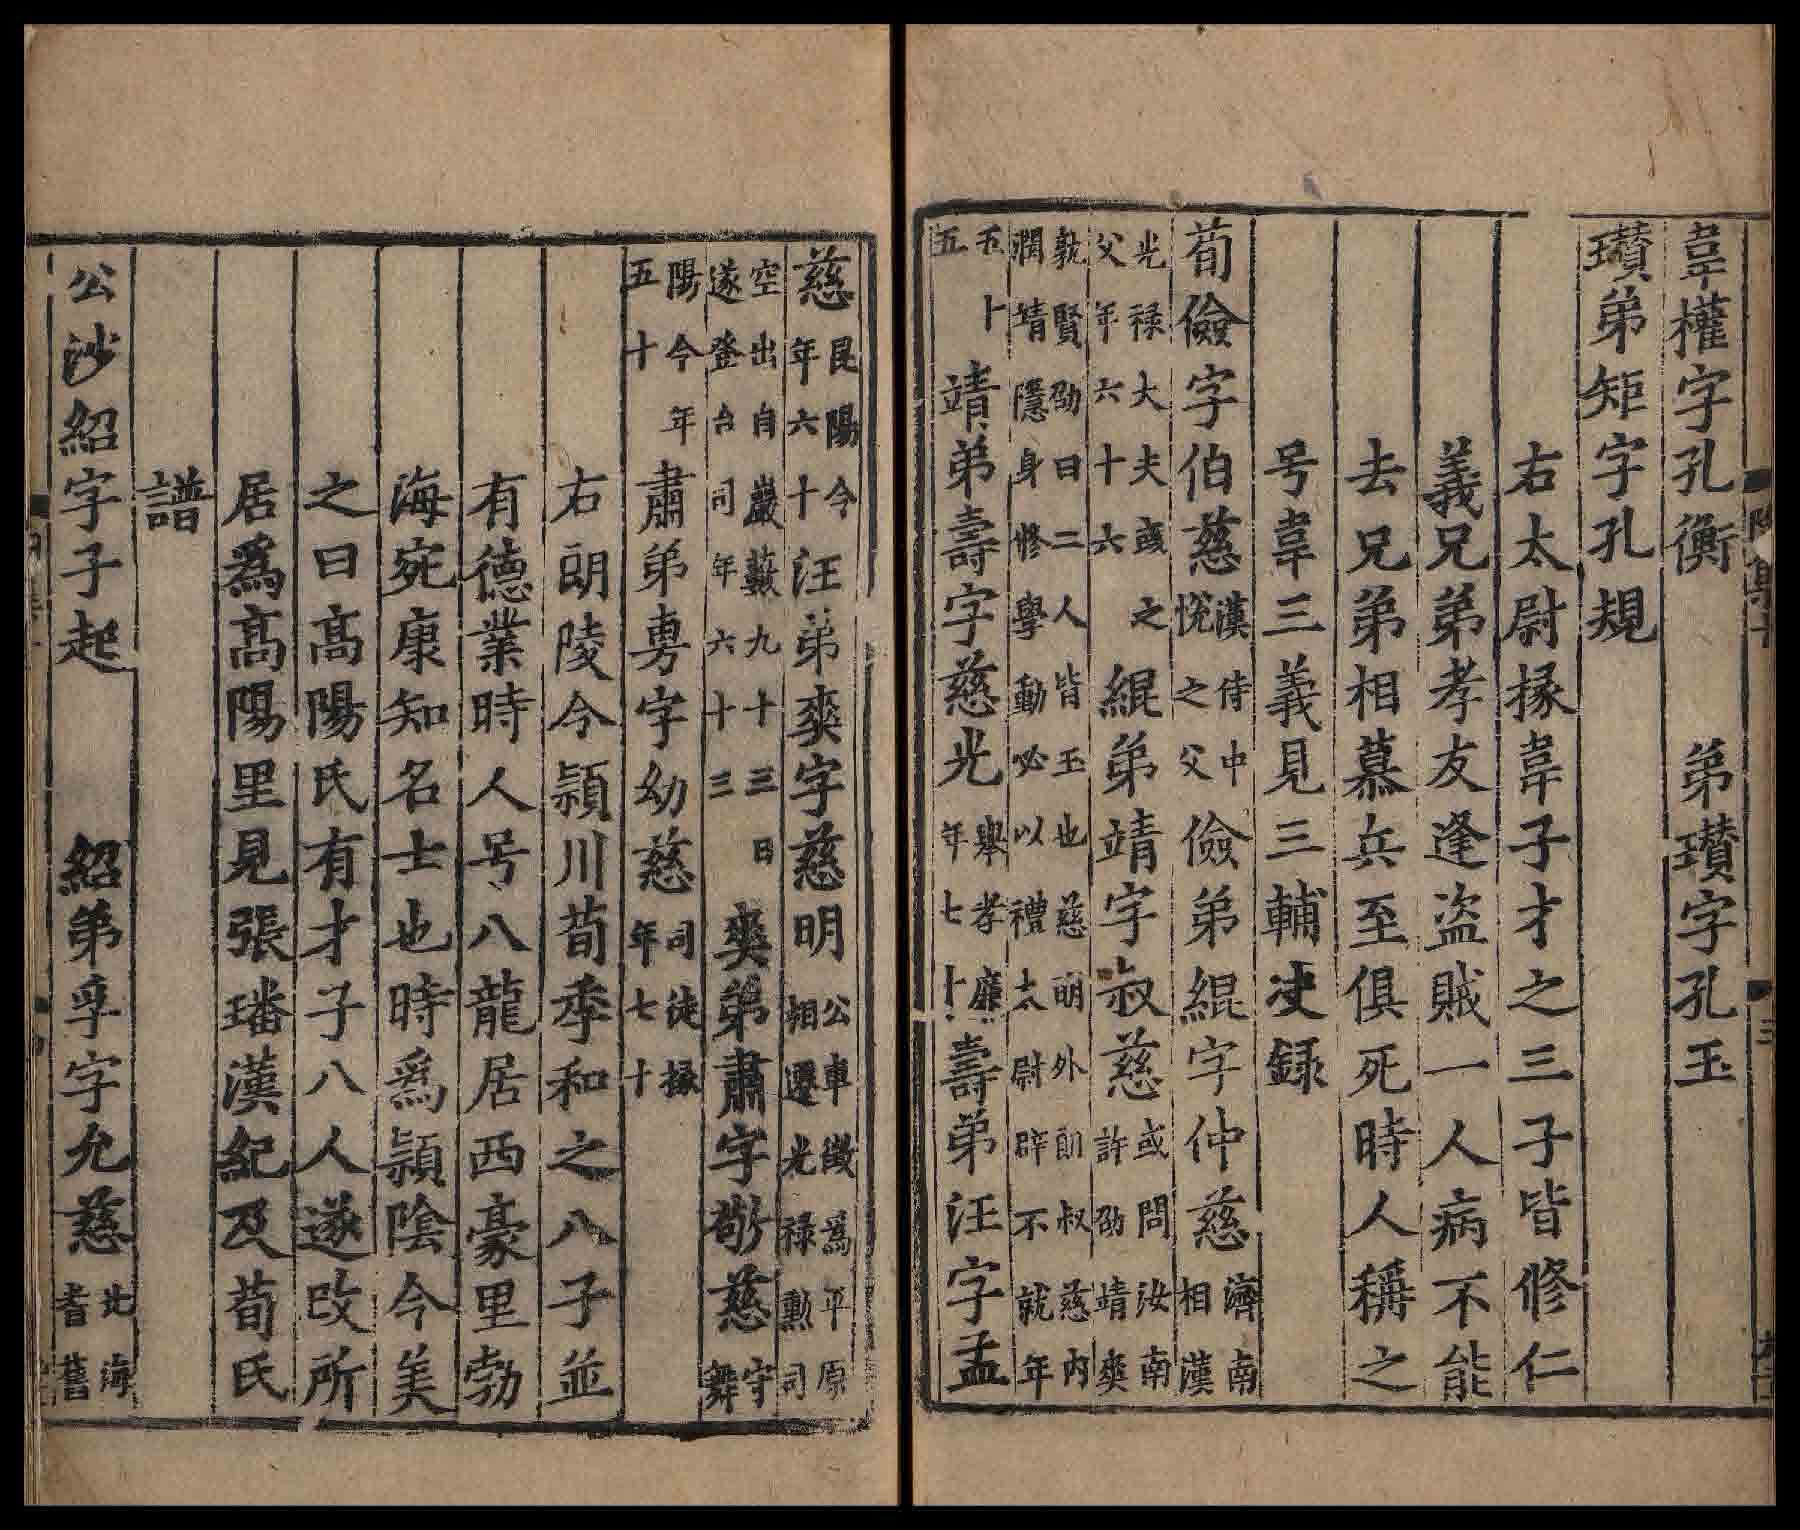 韋權字孔衡　弟瓚字孔玉
瓚弟矩字孔規
右太尉掾韋子才之三子皆修仁
義兄弟孝友逢盜賊一人病不能
去兄弟相慕兵至俱死時人稱之
号韋三義見三輔决録
荀儉字伯慈漢侍中悅之父儉弟緄字仲慈濟南相漢
光祿大夫彧之父年六十六緄弟靖字叔慈或問汝南許劭靖爽
孰賢劭曰二人皆玉也慈明外朗叔慈内潤靖隱身修學動必以禮太尉辟不就年
五十五靖弟壽字慈光舉孝廉年七十壽弟汪字孟
慈昆陽令年六十汪弟爽字慈明公車徵爲平原相遷光祿勲司
空出自巖藪九十三日遂登台司年六十三爽弟肅字敬慈守舞
陽令年五十肅弟旉字幼慈司徒掾年七十
右朗陵令潁川荀季和之八子並
有德業時人号八龍居西豪里勃
海宛康知名士也時爲潁陰令美
之曰高陽氏有才子八人遂改所
居爲高陽里見張璠漢紀及荀氏
譜
公沙紹字子起　紹弟孚字允慈北海耆舊